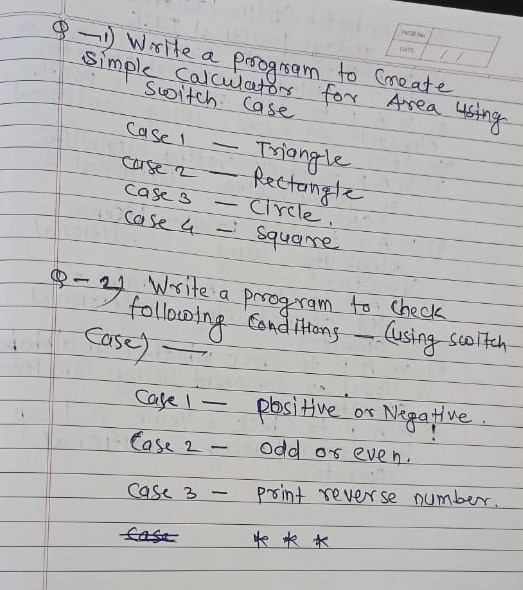 PAGE No.
DATE / /
Q-1) Write a program to Create
Simple Calculator for Area using
Switch Case
Case 1 — Triangle
Case 2 — Rectangle
Case 3 — Circle.
Case 4 — Square
Q-2) Write a program to check
following Conditions — (using switch
Case) —
Case 1 — positive or Negative.
Case 2 — odd or even.
Case 3 — print reverse number.
Case * * *